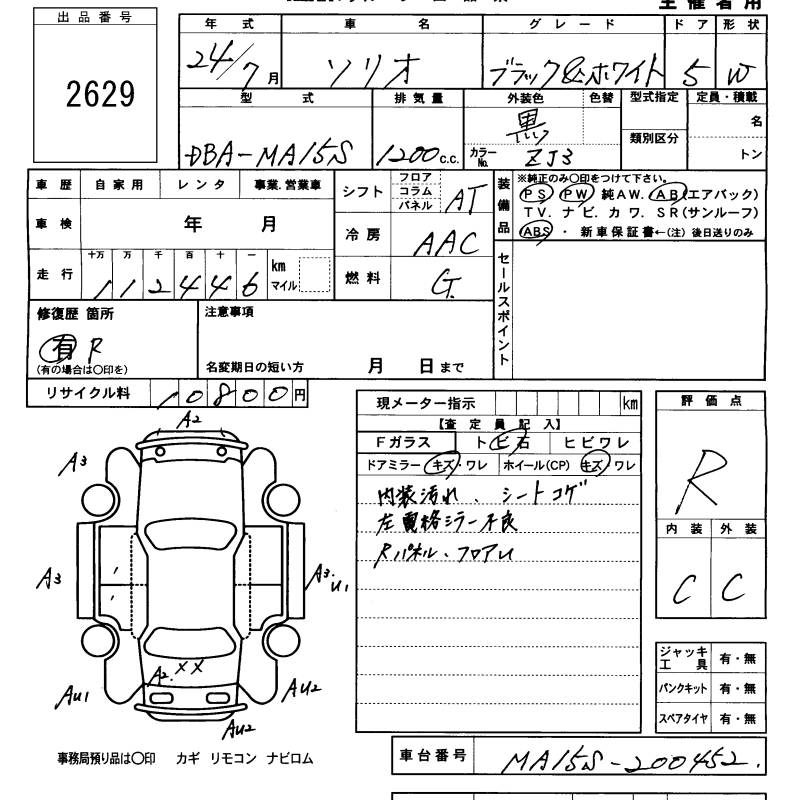 主催者用
出品番号
2629
年式 車名 グレード ドア 形状
24/7月 ソリオ ブラック&ホワイト 5 W
型式 排気量 外装色 色替 型式指定 定員・積載
DBA-MA15S 1200c.c. 黒 類別区分 名
カラーNo. ZJ3 トン
車歴 自家用 レンタ 事業.営業車
車検 年 月
走行 十万 万 千 百 十 一 km マイル
1 1 2 4 4 6
シフト フロア コラム パネル AT
冷房 AAC
燃料 G
装備品
※純正のみ〇印をつけて下さい。
PS PW 純AW. AB(エアバック)
TV. ナビ. カワ. SR(サンルーフ)
ABS ・ 新車保証書←(注) 後日送りのみ
セールスポイント
修復歴 箇所
有 R
(有の場合は〇印を)
注意事項
名変期日の短い方 月 日まで
リサイクル料 10800円
現メーター指示 km
【査定員記入】
Fガラス トビ石 ヒビワレ
ドアミラー キズ・ワレ ホイール(CP) キズ・ワレ
内装汚れ、シートコゲ
左電格ミラー不良
Rパネル、フロアU
評価点
R
内装 外装
C C
A2
A3
A3
A3.U1
A2.XX
AU1
AU2
AU2
ジャッキ工具 有・無
パンクキット 有・無
スペアタイヤ 有・無
事務局預り品は〇印 カギ リモコン ナビロム
車台番号 MA15S-200452.